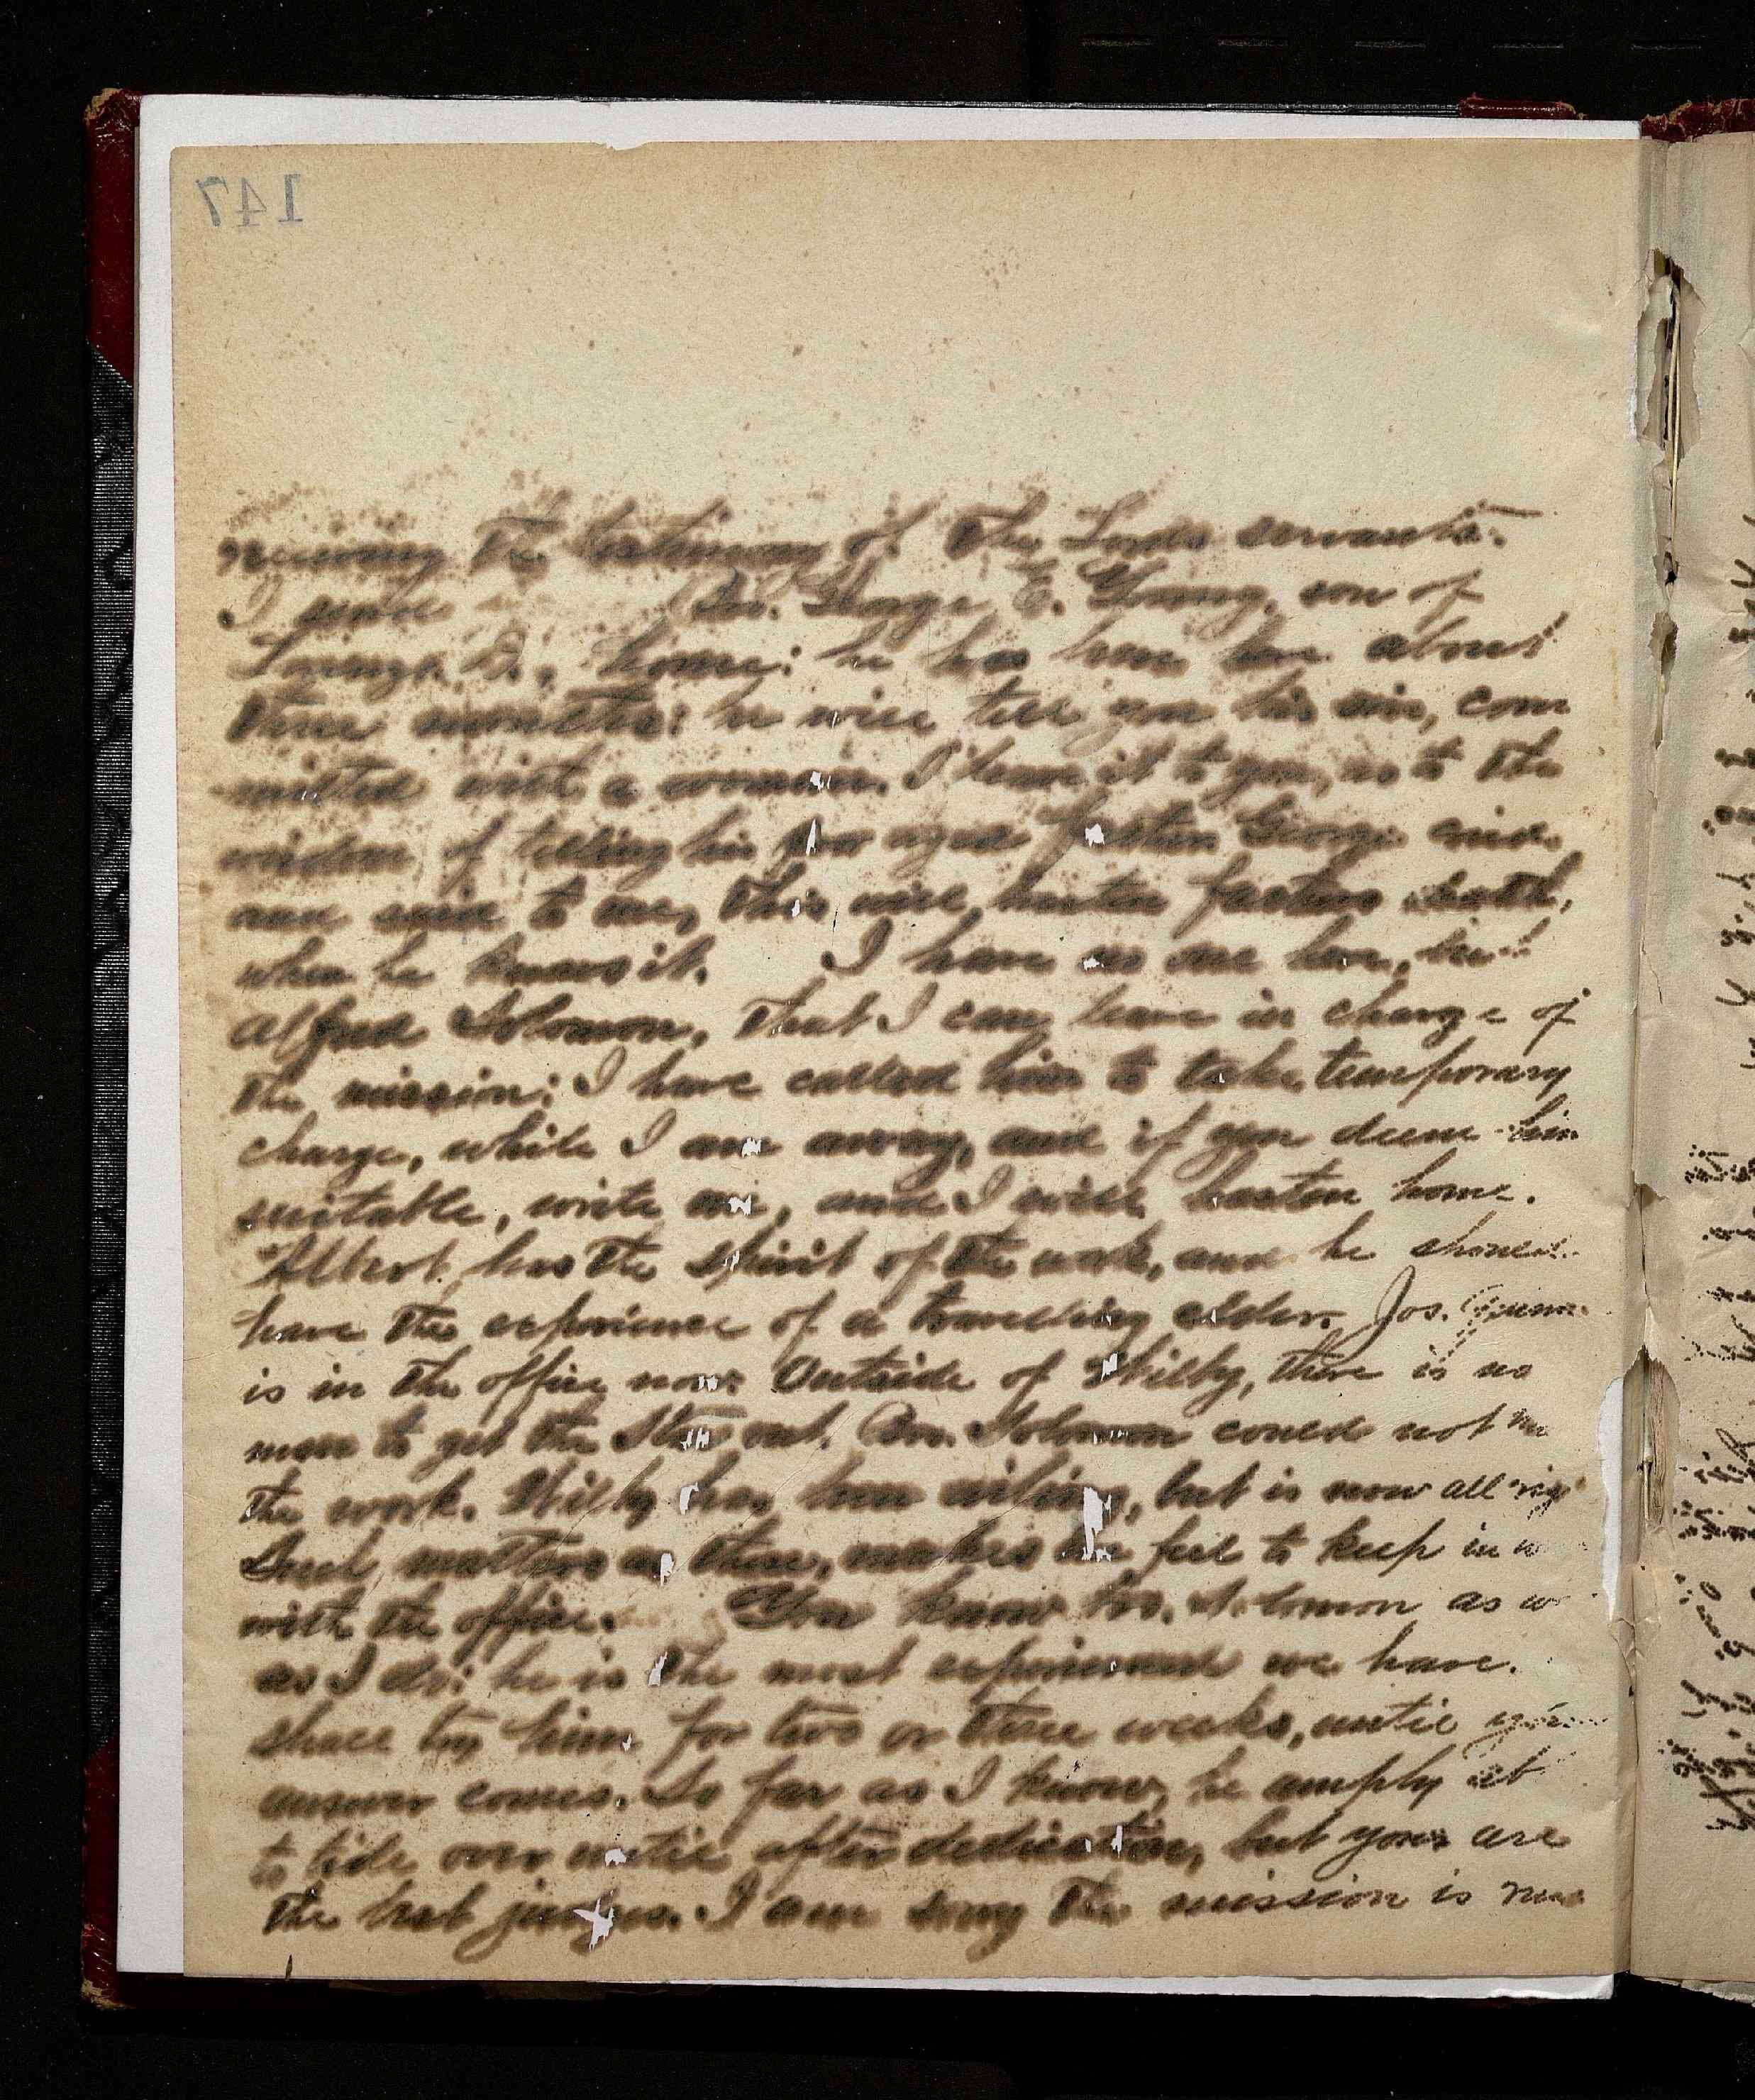 147
receiving the testimony of the Lords servants.
I send Bro. George E. Young, son of
Lorenzo D., home: he has been here about
three months: he will tell you his sin, com
mitted with a woman. I leave it to you, as to the
wisdom of telling his poor aged father. George cried
and said to me, this will hasten fathers death,
when he knows it. I have no one here, but
Alfred Solomon, that I can leave in charge of
the mission: I have called him to take temporary
charge, while I am away, and if you deem him
suitable, write me, and I will hasten home.
Albert has the spirit of the work, and he should
have the experience of a travelling elder. Jos.
is in the office now. Outside of Wilby, there is no
man to get the Star out. Bro. Solomon could not
the work. Wilby has been ailing, but is now all
Such matters as these, makes me feel to keep in
with the office. You know Bro. Solomon as
as I do: he is the most experienced we have.
shall try him for two or three weeks, until
answer comes. So far as I know, he amply
to tide over until after dedication, but you are
the best judges. I am sorry the mission is